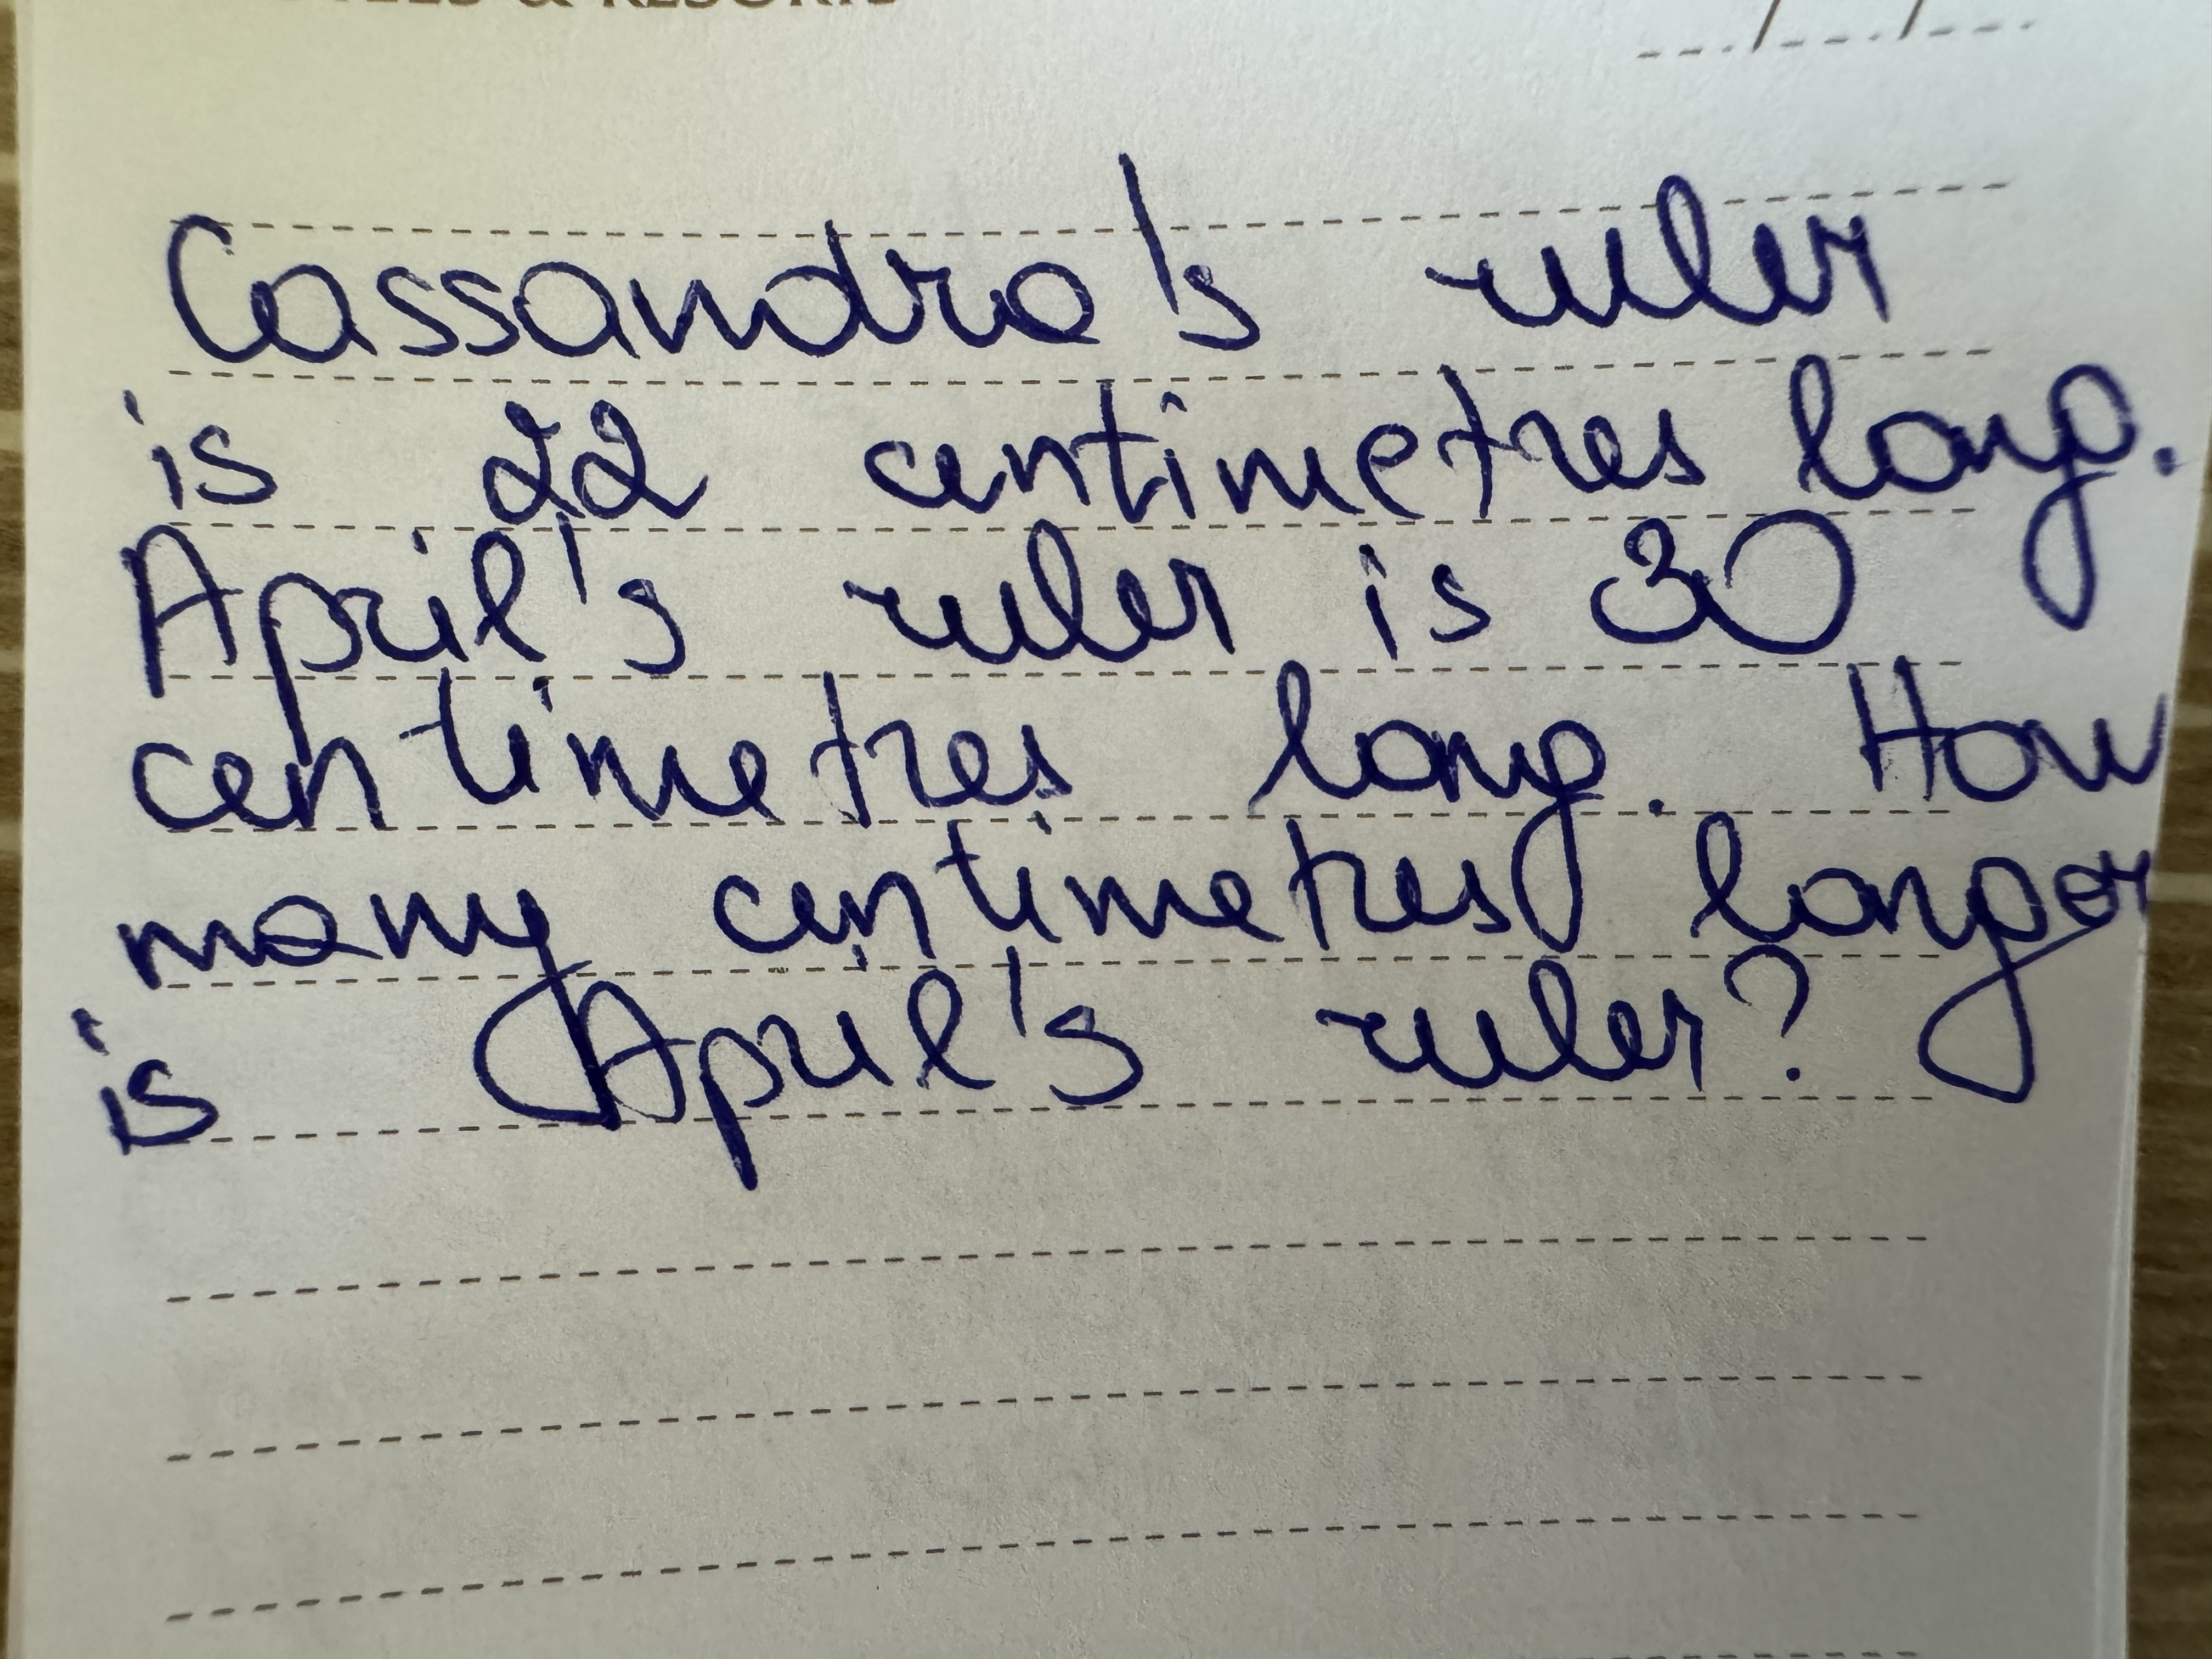 & RESORTS
Cassandra's ruler
is 22 centimetres long.
April's ruler is 30
centimetres long. How
many centimetres longer
is April's ruler?